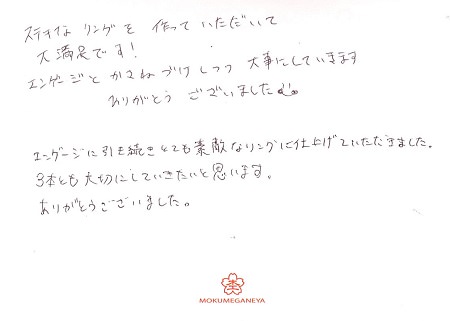 ステキな リングを 作って いただいて
大満足です!
エンゲージと かさねづけしつつ 大事にしていきます
ありがとう ございました
エンゲージに引き続きとても素敵なリングに仕上げていただきました。
3本とも大切にしていきたいと思います。
ありがとうございました。
MOKUMEGANEYA